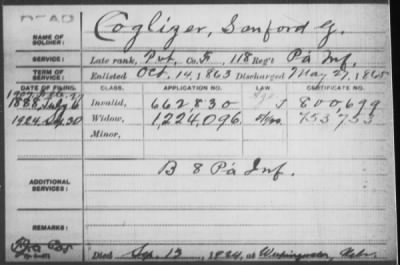 DEAD
NAME OF SOLDIER: Coglizer, Sanford G.
SERVICE: Late rank, Pvt, Co. F, 118 Reg't Pa Inf.
TERM OF SERVICE: Enlisted Oct. 14, 1863 Discharged May 27, 1865
DATE OF FILING. CLASS. APPLICATION NO. LAW. CERTIFICATE NO.
1888 July 6 Invalid, 662,830 J 800,699
1924 Sep 30 Widow, 1,224,096 753753
Minor,
ADDITIONAL SERVICES: B 8 Pa Inf.
REMARKS:
Died Sep. 12, 1924, at Weepingwater, Nebr.